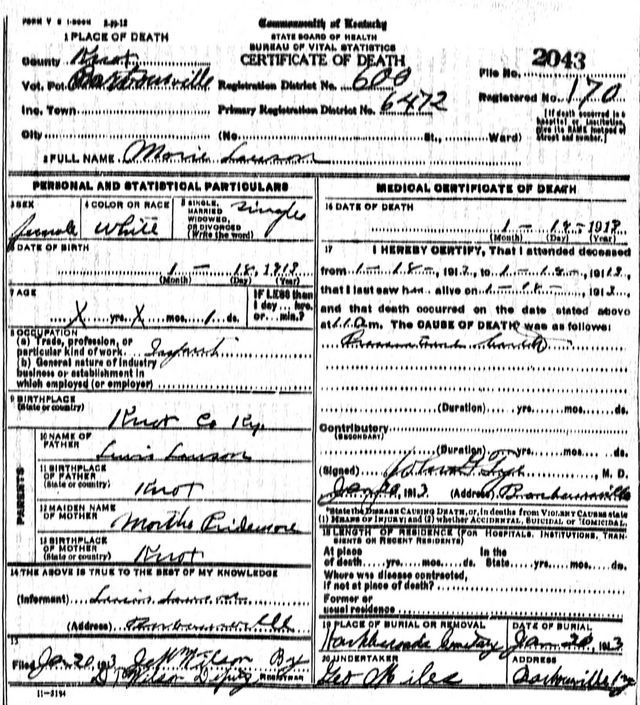 FORM V S 1-500M 2-??-12
Commonwealth of Kentucky
STATE BOARD OF HEALTH
BUREAU OF VITAL STATISTICS
CERTIFICATE OF DEATH
1 PLACE OF DEATH
County Knox
Vot. Pct. Barbourville
Inc. Town
City
Registration District No. 600
Primary Registration District No. 6472
(No. St., Ward)
File No. 2043
Registered No. 170
[If death occurred in a hospital or institution, give its NAME instead of street and number.]
2 FULL NAME Movie Lawson
PERSONAL AND STATISTICAL PARTICULARS
3 SEX
female
4 COLOR OR RACE
White
5 SINGLE, MARRIED WIDOWED, OR DIVORCED (Write the word)
Single
6 DATE OF BIRTH
1 - 18, 1913
(Month) (Day) (Year)
7 AGE
X yrs. X mos. 1 ds.
IF LESS than 1 day....hrs. or....min.?
8 OCCUPATION
(a) Trade, profession, or
particular kind of work Infant
(b) General nature of industry
business or establishment in
which employed (or employer)
9 BIRTHPLACE
(State or country)
Knox Co Ky
PARENTS
10 NAME OF FATHER
Lewis Lawson
11 BIRTHPLACE OF FATHER
(State or country)
Knox
12 MAIDEN NAME OF MOTHER
Martha Pridemore
13 BIRTHPLACE OF MOTHER
(State or country)
Knox
14 THE ABOVE IS TRUE TO THE BEST OF MY KNOWLEDGE
(Informant) Lewis Lawson
(Address) Barbourville
15
Filed Jan 20, 1913 Wilson By
Wilson Deputy REGISTRAR
11-3194
MEDICAL CERTIFICATE OF DEATH
16 DATE OF DEATH
1 - 18 - 1913
(Month) (Day) (Year)
17 I HEREBY CERTIFY, That I attended deceased
from 1 - 18 -, 1913, to 1 - 18 -, 1913,
that I last saw her alive on 1 - 18 -, 1913,
and that death occurred on the date stated above
at m. The CAUSE OF DEATH* was as follows:
(Duration) yrs. mos. ds.
Contributory
(SECONDARY)
(Duration) yrs. mos. ds.
(Signed) M. D.
Jan 20, 1913 (Address) Barbourville
*State the DISEASE CAUSING DEATH, or, in deaths from VIOLENT CAUSES state
(1) MEANS OF INJURY; and (2) whether ACCIDENTAL, SUICIDAL or HOMICIDAL.
18 LENGTH OF RESIDENCE (FOR HOSPITALS, INSTITUTIONS, TRANSIENTS OR RECENT RESIDENTS)
At place of death yrs. mos. ds. In the State yrs. mos. ds.
Where was disease contracted,
if not at place of death?
Former or
usual residence
19 PLACE OF BURIAL OR REMOVAL
Cemetery
DATE OF BURIAL
Jan 20 1913
20 UNDERTAKER
Geo Miles
ADDRESS
Barbourville Ky